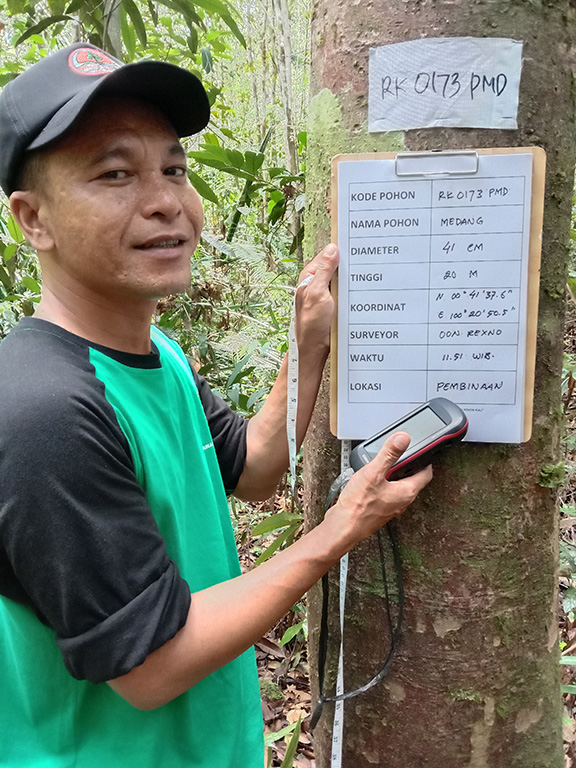 RK 0173 PMD
KODE POHON RK 0173 PMD
NAMA POHON MEDANG
DIAMETER 41 CM
TINGGI 20 M
KOORDINAT N 00° 41' 37.6"
E 100° 20' 50.5"
SURVEYOR DON REXNO
WAKTU 11.51 WIB.
LOKASI PEMBINAAN